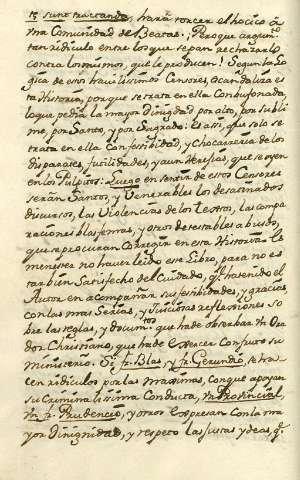 tt sunt tractanda, hará torcer el hocico á
una Comunidad de Beatas. Pero que argum
tan ridiculo entre los que sepan rechazarlo
contra los mismos, que le producen! Segun la Lo
gica de estos hauilissimos Censores, acandaliza es
ta Historia, porque se trata en ella con bufonada
lo que pedia la mayor Dignidad por alto, por subli
me, por Santo, y por Sagrado: Es assi, que solo se
trata en ella con festibidad, y chocarreria de los
disparates, futilidades, y aun Heresias, que se oyen
en los Pulpitos: Luego en sentir de estos Censores
serán Santos, y Venerables los desatinados
discursos, las Violencias de los textos, las compa
raciones blasfemas, y otros detestables abusos,
que se procuran corregir en esta Historia. Es
menester no haver leido este Libro, para no es
tar bien satisfecho del cuidado, qe. ha tenido el
Autor en acompañar sus festibidades, y gracias
con las mas serias, y juiciosas reflexiones so
bre las reglas, y docum.tos que ha de observar un Ora
dor Christiano, que ha de exercer con fruto su
ministerio. Si fr. Blas, y fr. Gerundio, se tra
cen ridiculos por las maximas, con que apoyan
su criminalissima conducta, un Provincial,
un fr. Prudencio, y otros expresan con la ma
yor Dignidad, y respeto las justas ydeas, q.e